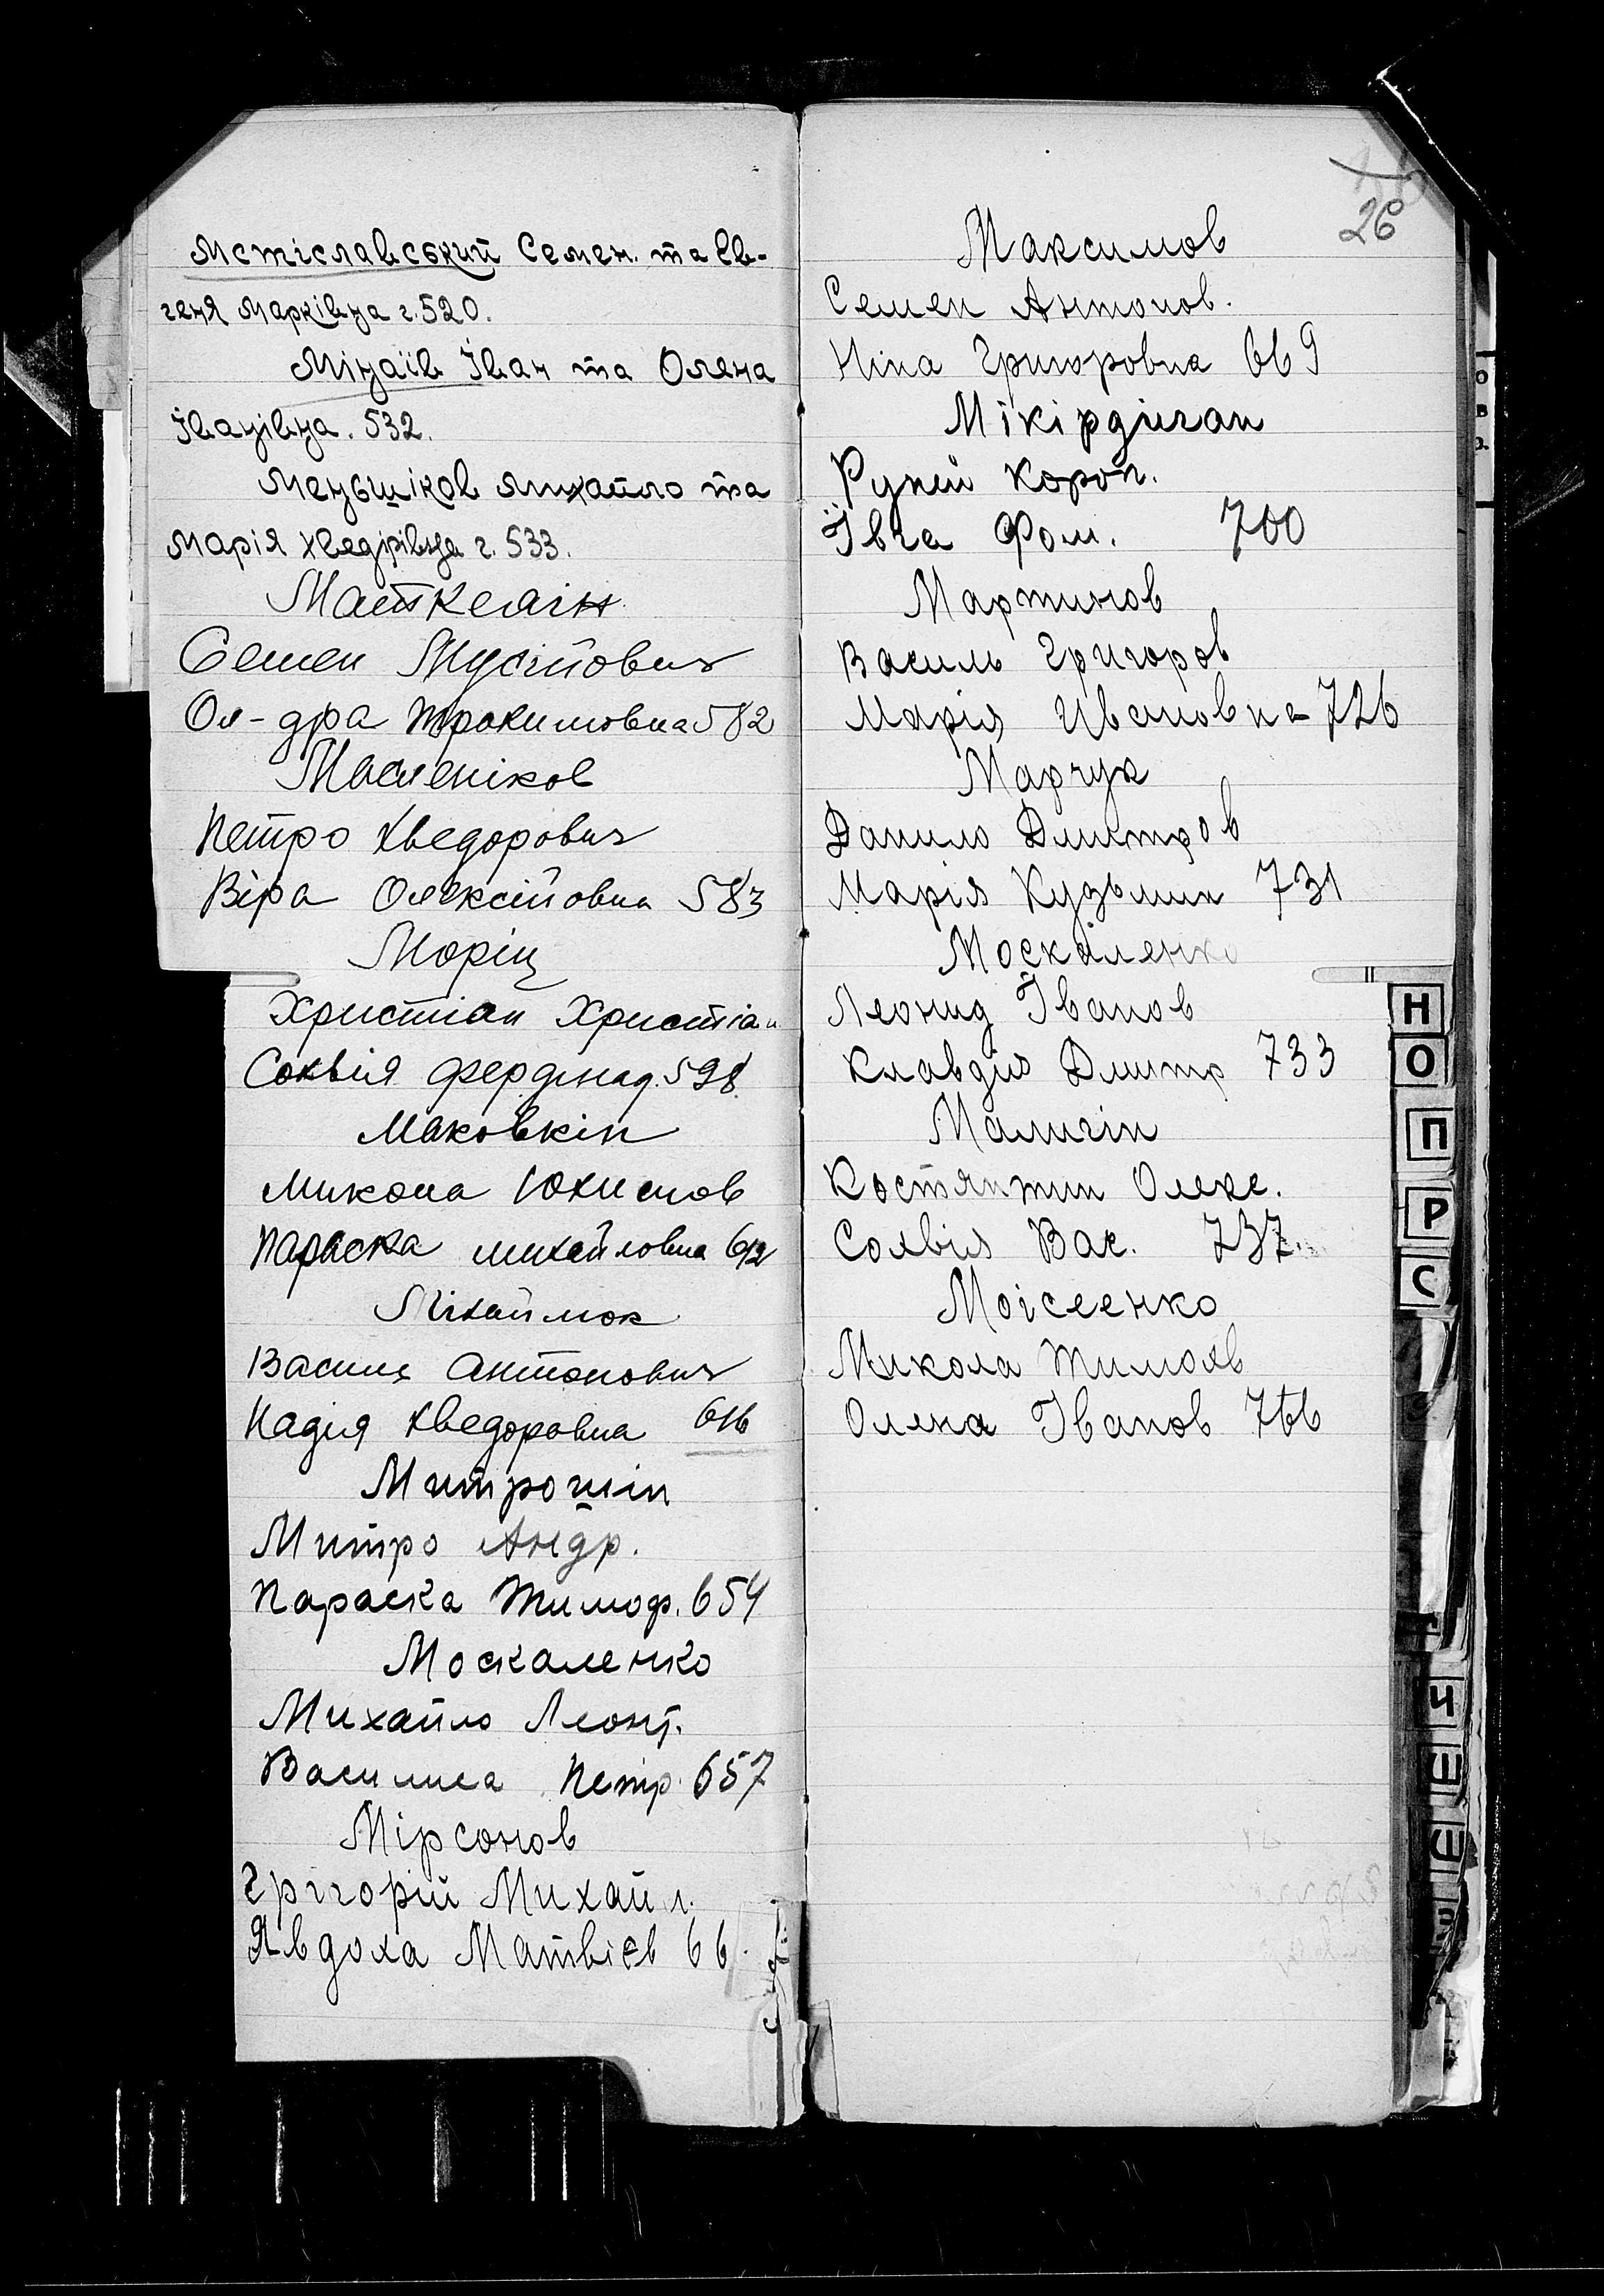 Мстіславський Семен. та Єв-
геня Марківна г. 520.
Мінаїв Іван та Олена
Іванівна. 532.
Меньшіков Михайло та
Марія Хведірівна г. 533.
Маткелін
Семен Мусійович
Ол-дра Трохимовна 582
Маслєніков
Петро Хведорович
Віра Олексійовна 583
Моріц
Христіан Христіан
Сохвія Фердінад. 598
Маковкін
Микола Юхимов
Параска Михайловна 612
Міхайлюк
Василь Антонович
Надія Хведоровна 616
Митрошін
Митро Андр.
Параска Тимоф. 654
Москаленко
Михайло Леонт.
Василиса Петр. 657
Мірсонов
Григорій Михайл.
Явдоха Матвієв 66
26
Максимов
Семен Антонов.
Ніна Григоровна 669
Мікірдичан
Короп.
Ївга Фом. 700
Мартинов
Василь Григоров
Марія Ивановна 726
Марчук
Данило Дмитров
Марія Кузьмин 731
Москаленко
Леонид Іванов
Клавдія Дмитр 733
Малигін
Костянтин Олекс.
Сохвія Вас. 737.
Моісеенко
Микола Тимохв
Олена Іванов 766
Н
О
П
Р
С
Ч